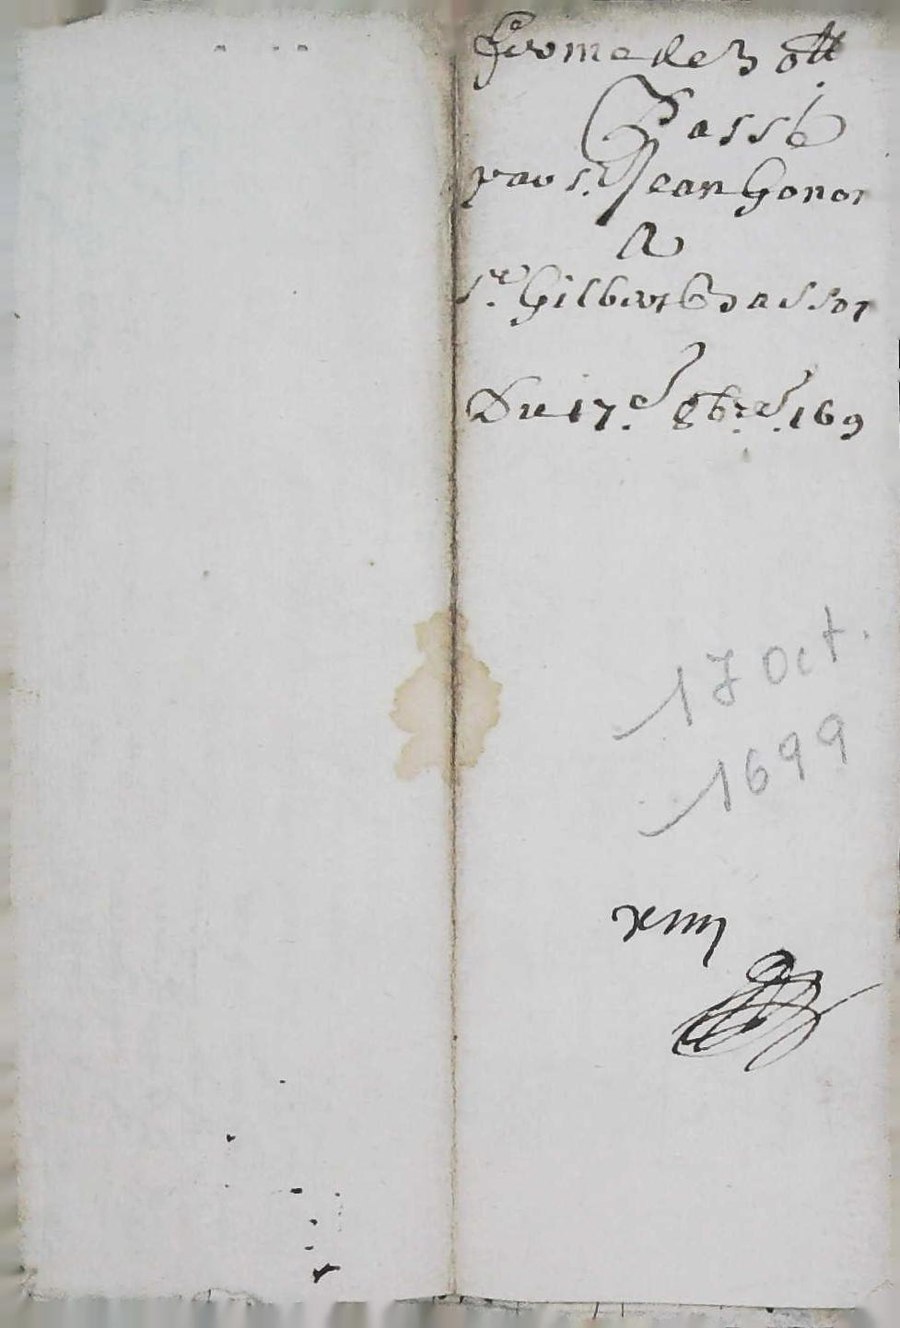 Ferme de 30tt
Passé
par s.r Jean Gonor
A
s.r Gilbert Bassor
Du 17.e 8b.re 169
17 Oct.
1699